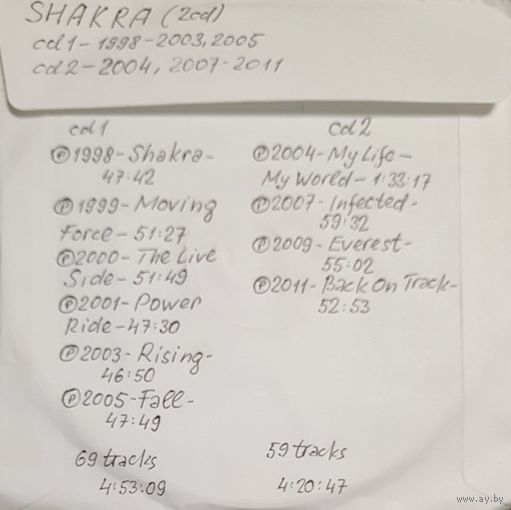 SHAKRA (2cd)
cd1-1998-2003,2005
cd2-2004, 2007-2011
cd1
℗1998-Shakra-
47:42
℗1999-Moving
Force-51:27
℗2000-The Live
Side-51:49
℗2001-Power
Ride-47:30
℗2003-Rising-
46:50
℗2005-Fall-
47:49
69 tracks
4:53:09
Cd2
℗2004-My Life-
My World-1:33:17
℗2007-Infected-
59:32
℗2009-Everest-
55:02
℗2011-Back On Track-
52:53
59 tracks
4:20:47
www.ay.by